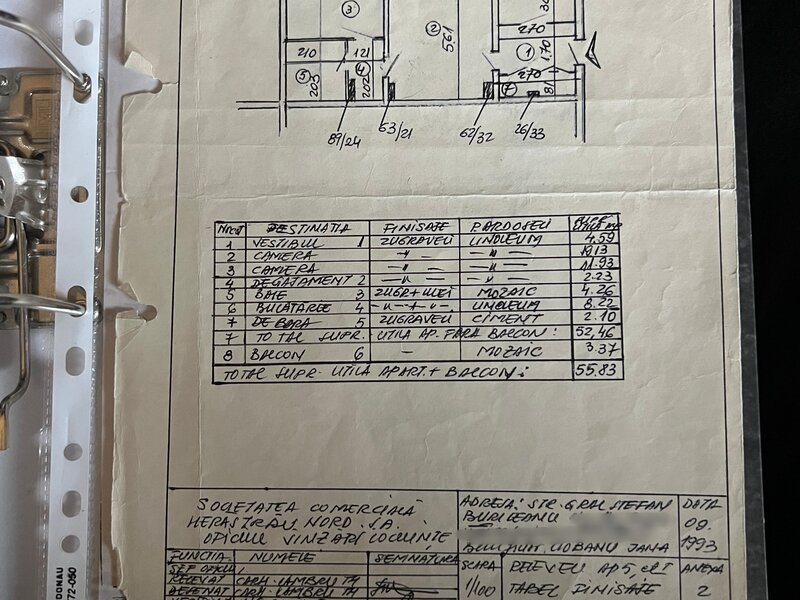 3
2
561
270
1
170
270
7
81
210
121
5
203
4
202
89/24
63/21
62/32
26/33
Nr crt DESTINATIA FINISAJE PARDOSELI SUPR. UTILA MP
1 VESTIBUL 1 ZUGRAVELI LINOLEUM 4.59
2 CAMERA —"— —"— 19.13
3 CAMERA —"— —"— 11.93
4 DEGAJAMENT 2 —"— —"— 2.23
5 BAIE 3 ZUGR+ULEI MOZAIC 4.26
6 BUCATARIE 4 —"—+—"— LINOLEUM 8.22
7 DEBARA 5 ZUGRAVELI CIMENT 2.10
7 TOTAL SUPR. UTILA AP. FARA BALCON: 52,46
8 BALCON 6 — MOZAIC 3.37
TOTAL SUPR. UTILA APART.+ BALCON: 55.83
SOCIETATEA COMERCIALĂ
HERASTRAU NORD S.A.
OFICIUL VINZARI LOCUINTE
ADRESA: STR. GRAL STEFAN
BURILEANU
CIOBANU JANA
DATA
09.
1993
FUNCTIA NUMELE SEMNATURA
SEF OFICIU,
RELEVAT
DESENAT
SCARA
1/100
RELEVEU AP 5, ET I
TABEL FINISAJE
ANEXA
2
DONAU
72-050